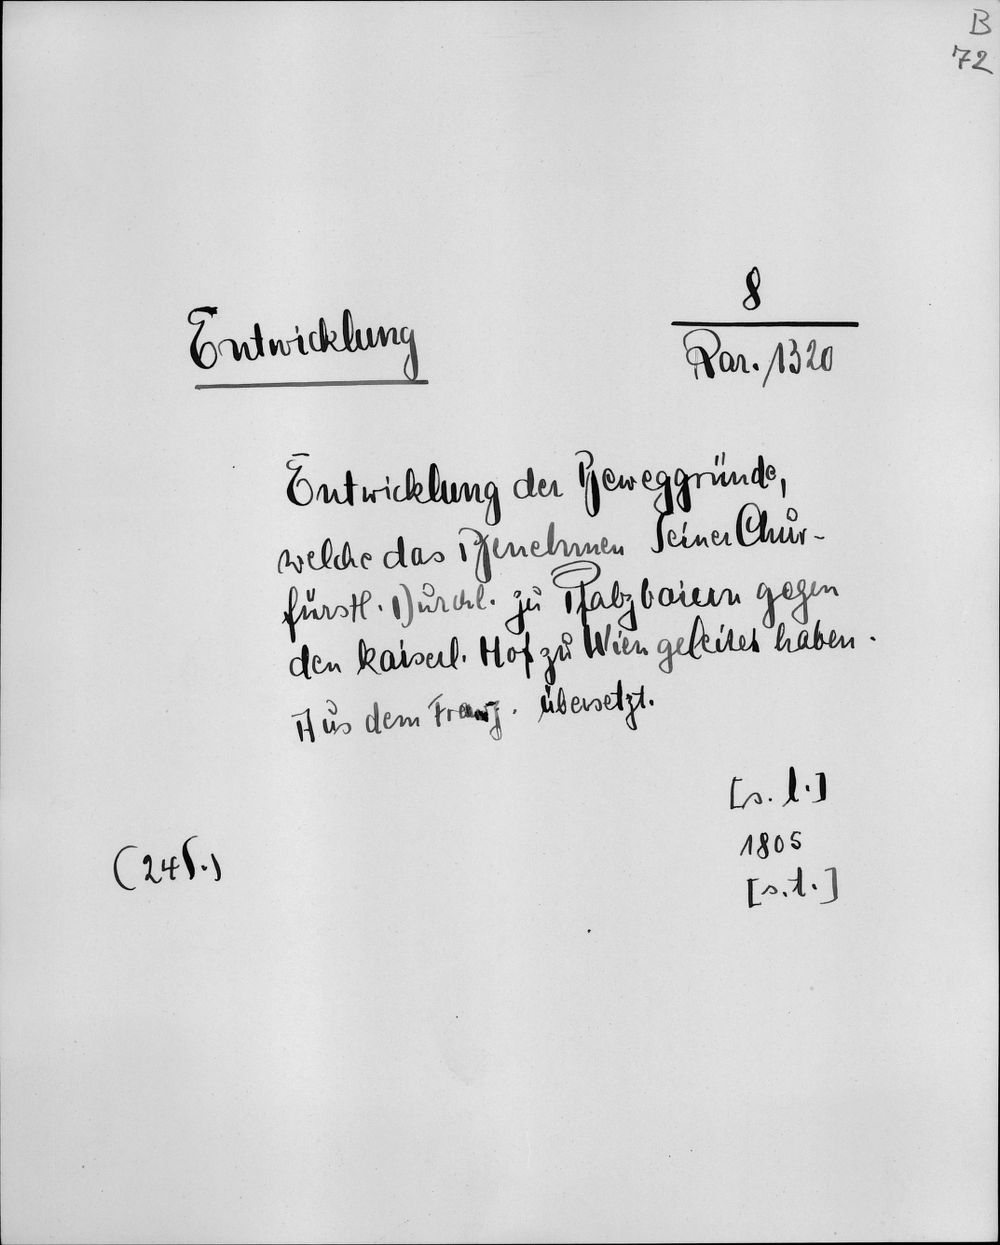 B
72
8
Entwicklung
Rar. 1320
Entwicklung der Beweggründe,
welche das Benehmen Seiner Chur-
fürstl. Durchl. zu Pfalzbaiern gegen
den kaiserl. Hof zu Wien geleitet haben.
Aus dem Franz. übersetzt.
[s. l.]
1805
(24 S.)
[s. t.]